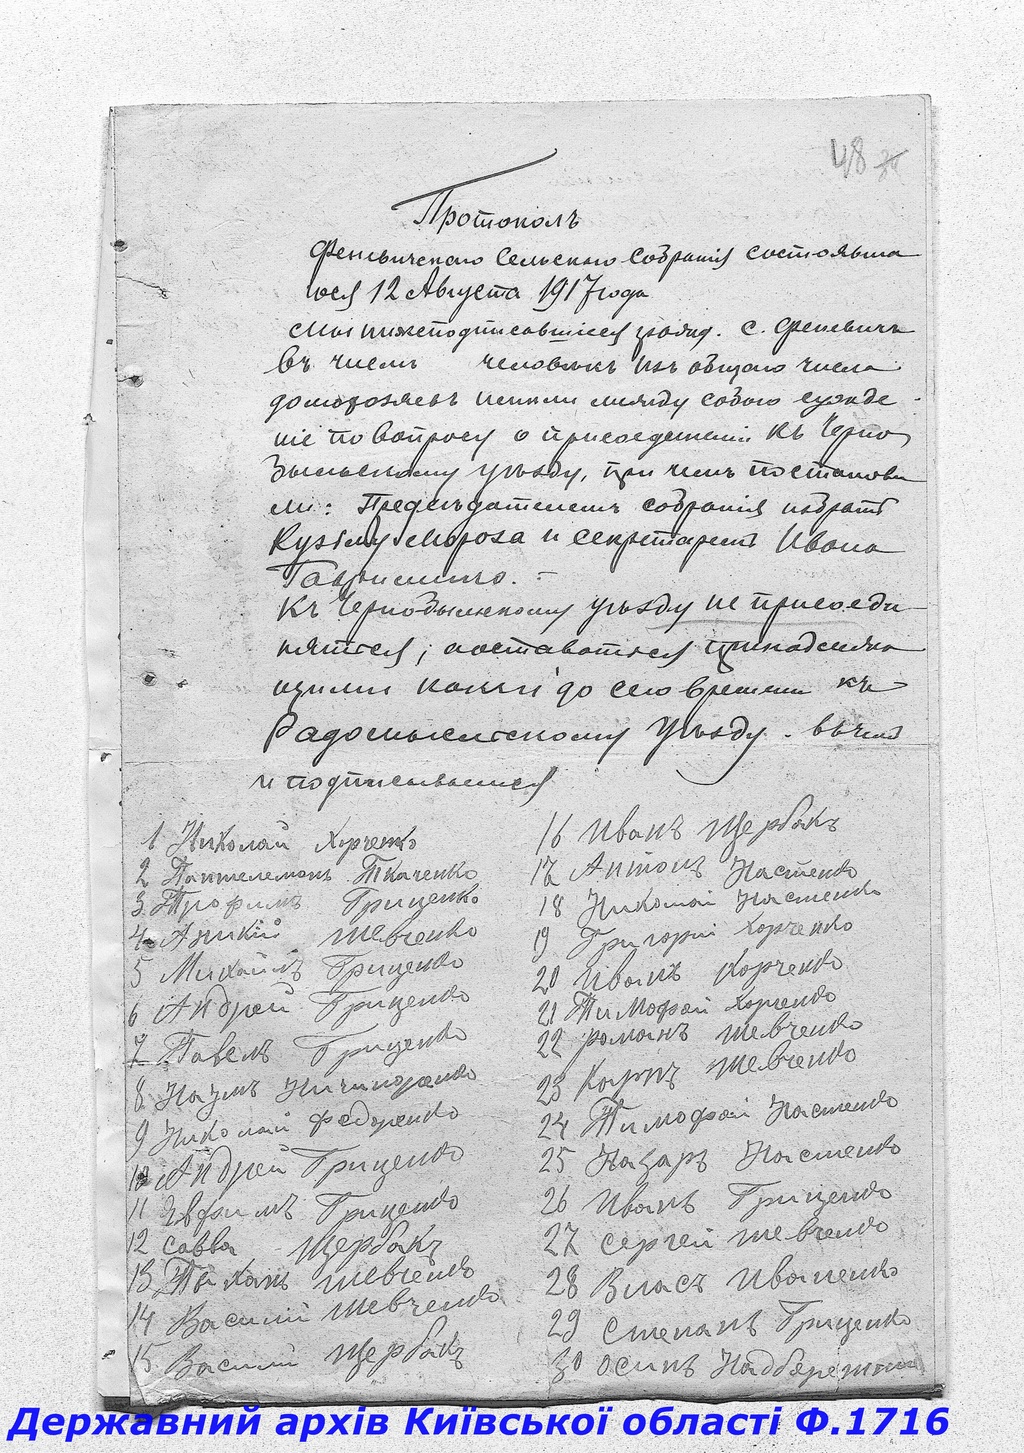 48
Протоколъ
Феневичского Сельского Собранія состоявша
гося 12 Августа 1917 года
Мы нижеподписавшіеся гражд. с. Феневичъ
въ числѣ человѣкъ изъ общаго числа
домохозяевъ имѣли между собою сужде
ніе по вопросу о присоединеніи къ Черно
быльскому уѣзду, при чемъ постанови
ли: Предсѣдателемъ собранія избрать
Кузьму Мороза и секретаремъ Ивана
Гаврименко. -
Къ Чернобыльскому уѣзду не присоеди
няться, а оставаться принадлежа
щими какъ и до сего времени къ
Радомысльскому Уѣзду. въ чемъ
и подписываемся
1 Николай Хорченко
2 Пантелемонъ Ткаченко
3 Трофимъ Гриценко
4 Аникій Шевченко
5 Михаилъ Гриценко
6 Андрей Гриценко
7 Павелъ Гриценко
8 Наумъ Ничипоренко
9 Николай Федоренко
10 Андрей Гриценко
11 Евфимъ Гриценко
12 Савва Щербакъ
13 Тихонъ Шевченко
14 Василій Шевченко
15 Василий Щербакъ
16 Иванъ Щербакъ
17 Антонъ Настенко
18 Николай Настенко
19 Григорій Хорченко
20 Иванъ Хорченко
21 Тимофей Хорченко
22 Романъ Шевченко
23 Карпъ Шевченко
24 Тимофей Настенко
25 Назаръ Настенко
26 Иванъ Гриценко
27 Сергей Шевченко
28 Власъ Иваненко
29 Степанъ Гриценко
30 Осипъ
Державний архів Київської області Ф.1716